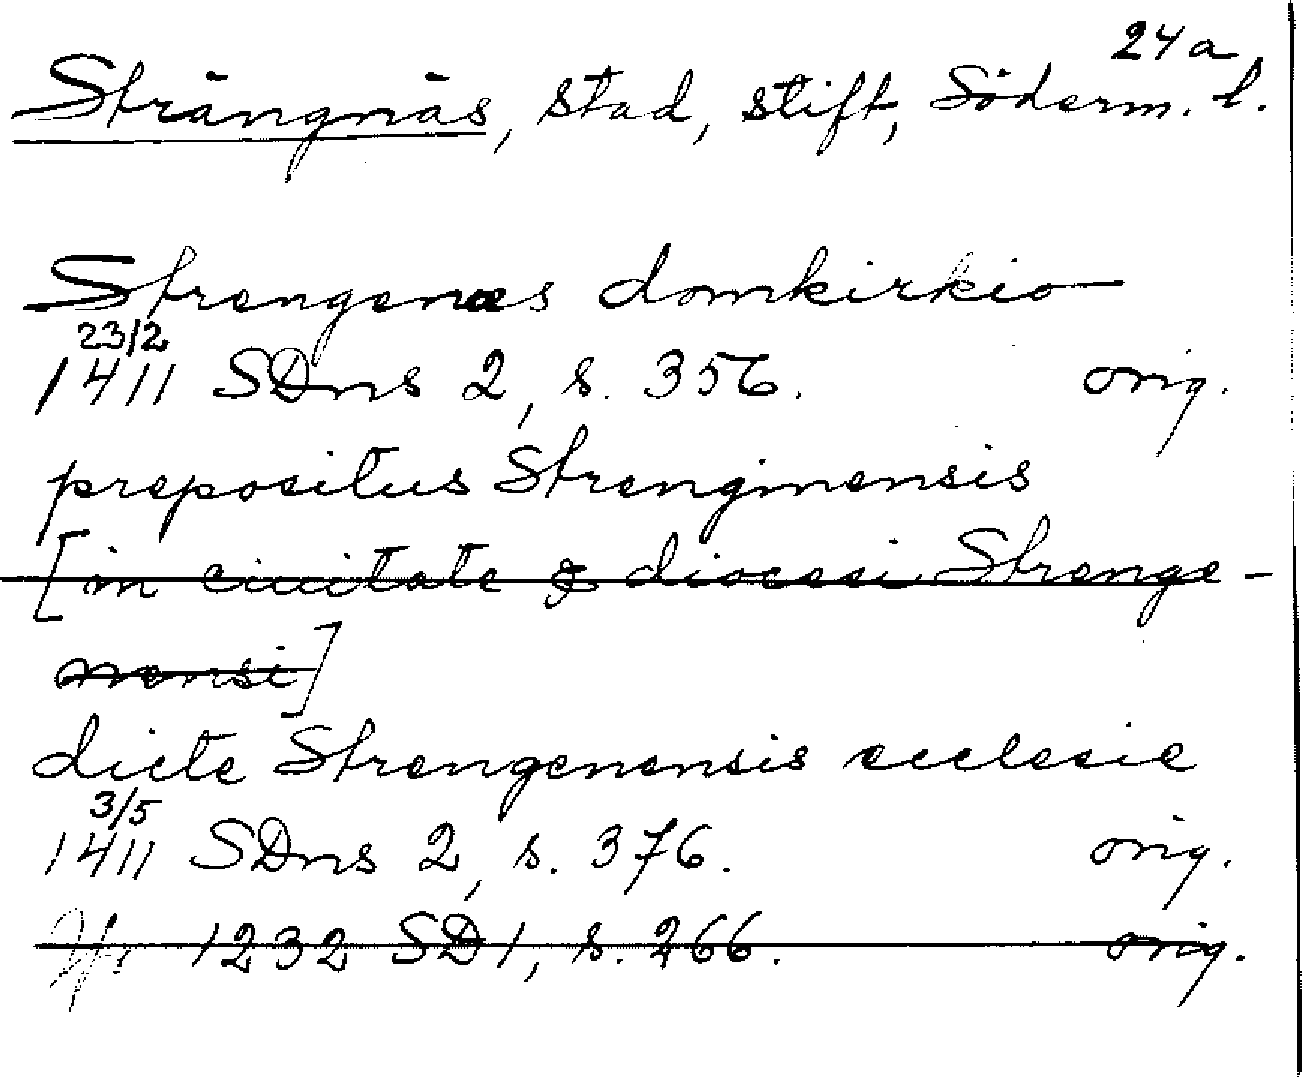 24a
Strängnäs, stad, stift, Söderm. l.
Strengenæs domkirkio
23/2
1411 SDns 2, s. 356. orig.
prepositus Strenginensis
[in ciuitate & diocesi Strenge-
nensi]
dicte Strengenensis ecclesie
3/5
1411 SDns 2, s. 376. orig.
1232 SD 1, s. 266. orig.